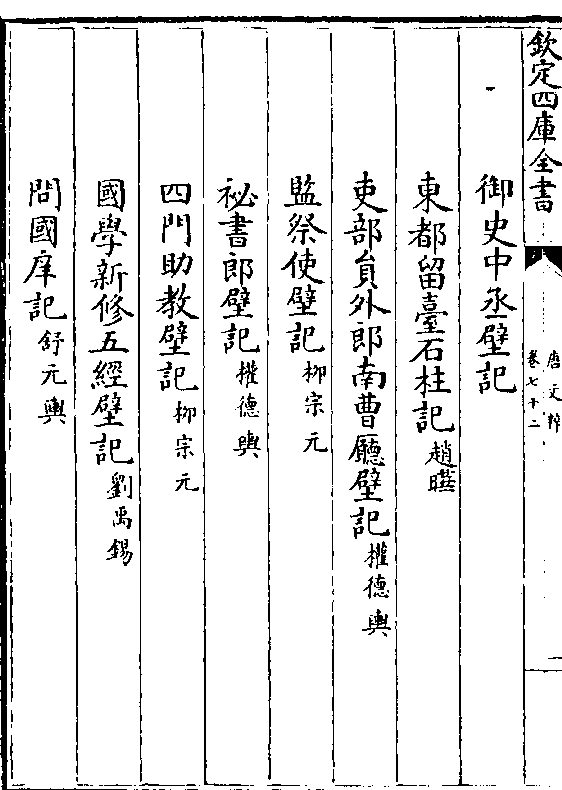 欽定四庫全書
唐文粹
卷七十二
一
御史中丞壁記
東都留臺石柱記趙曮
吏部員外郎南曹廳壁記權德輿
監祭使壁記柳宗元
祕書郎壁記權德輿
四門助教壁記柳宗元
國學新修五經壁記劉禹錫
問國庠記舒元輿